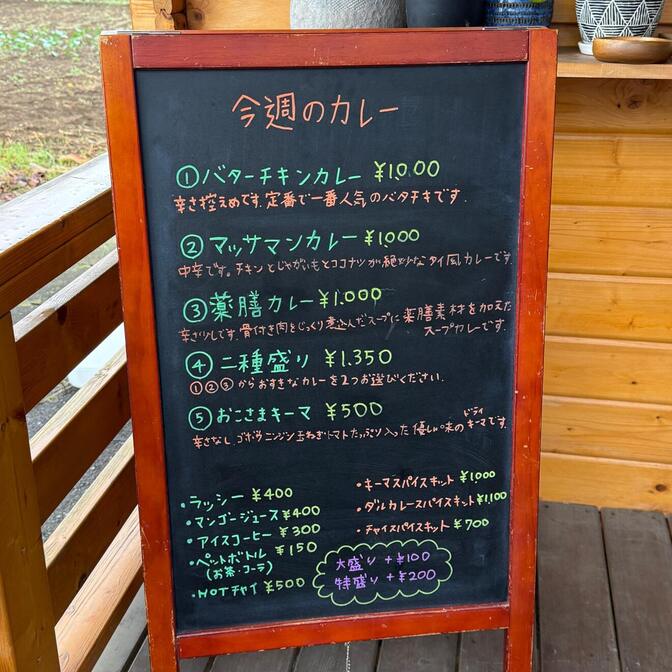 今週のカレー
①バターチキンカレー ¥1,000
辛さ控えめです。定番で一番人気のバタチキです。
②マッサマンカレー ¥1,000
中辛です。チキンとじゃがいもとココナツが絶妙なタイ風カレーです。
③薬膳カレー ¥1,000
辛さ少しです。骨付き肉をじっくり煮込んだスープに薬膳素材を加えた
スープカレーです。
④二種盛り ¥1,350
①②③からおすきなカレーを2つお選びください。
⑤おこさまキーマ ¥500
辛さなし。ゴボウニンジン玉ねぎトマトたっぷり入った優しい味のドライキーマです。
・ラッシー ¥400
・マンゴージュース ¥400
・アイスコーヒー ¥300
・ペットボトル ¥150
(お茶・コーラ)
・HOTチャイ ¥500
・キーマスパイスキット ¥1,000
・ダルカレースパイスキット ¥1,100
・チャイスパイスキット ¥700
大盛り +¥100
特盛り +¥200